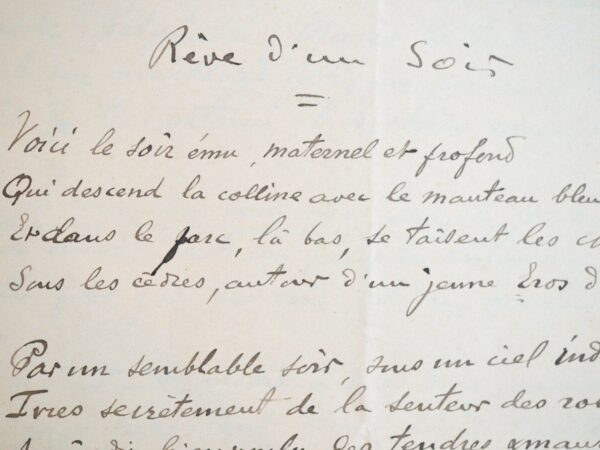 Rêve d'un Soir
Voici le soir ému, maternel et profond
Qui descend la colline avec le manteau bleu
Et dans le parc, là bas, se taisent les
Sous les cèdres, autour d'un jeune Eros
Par un semblable soir, sous un ciel
Ivres secrètement de la senteur des
des tendres amants